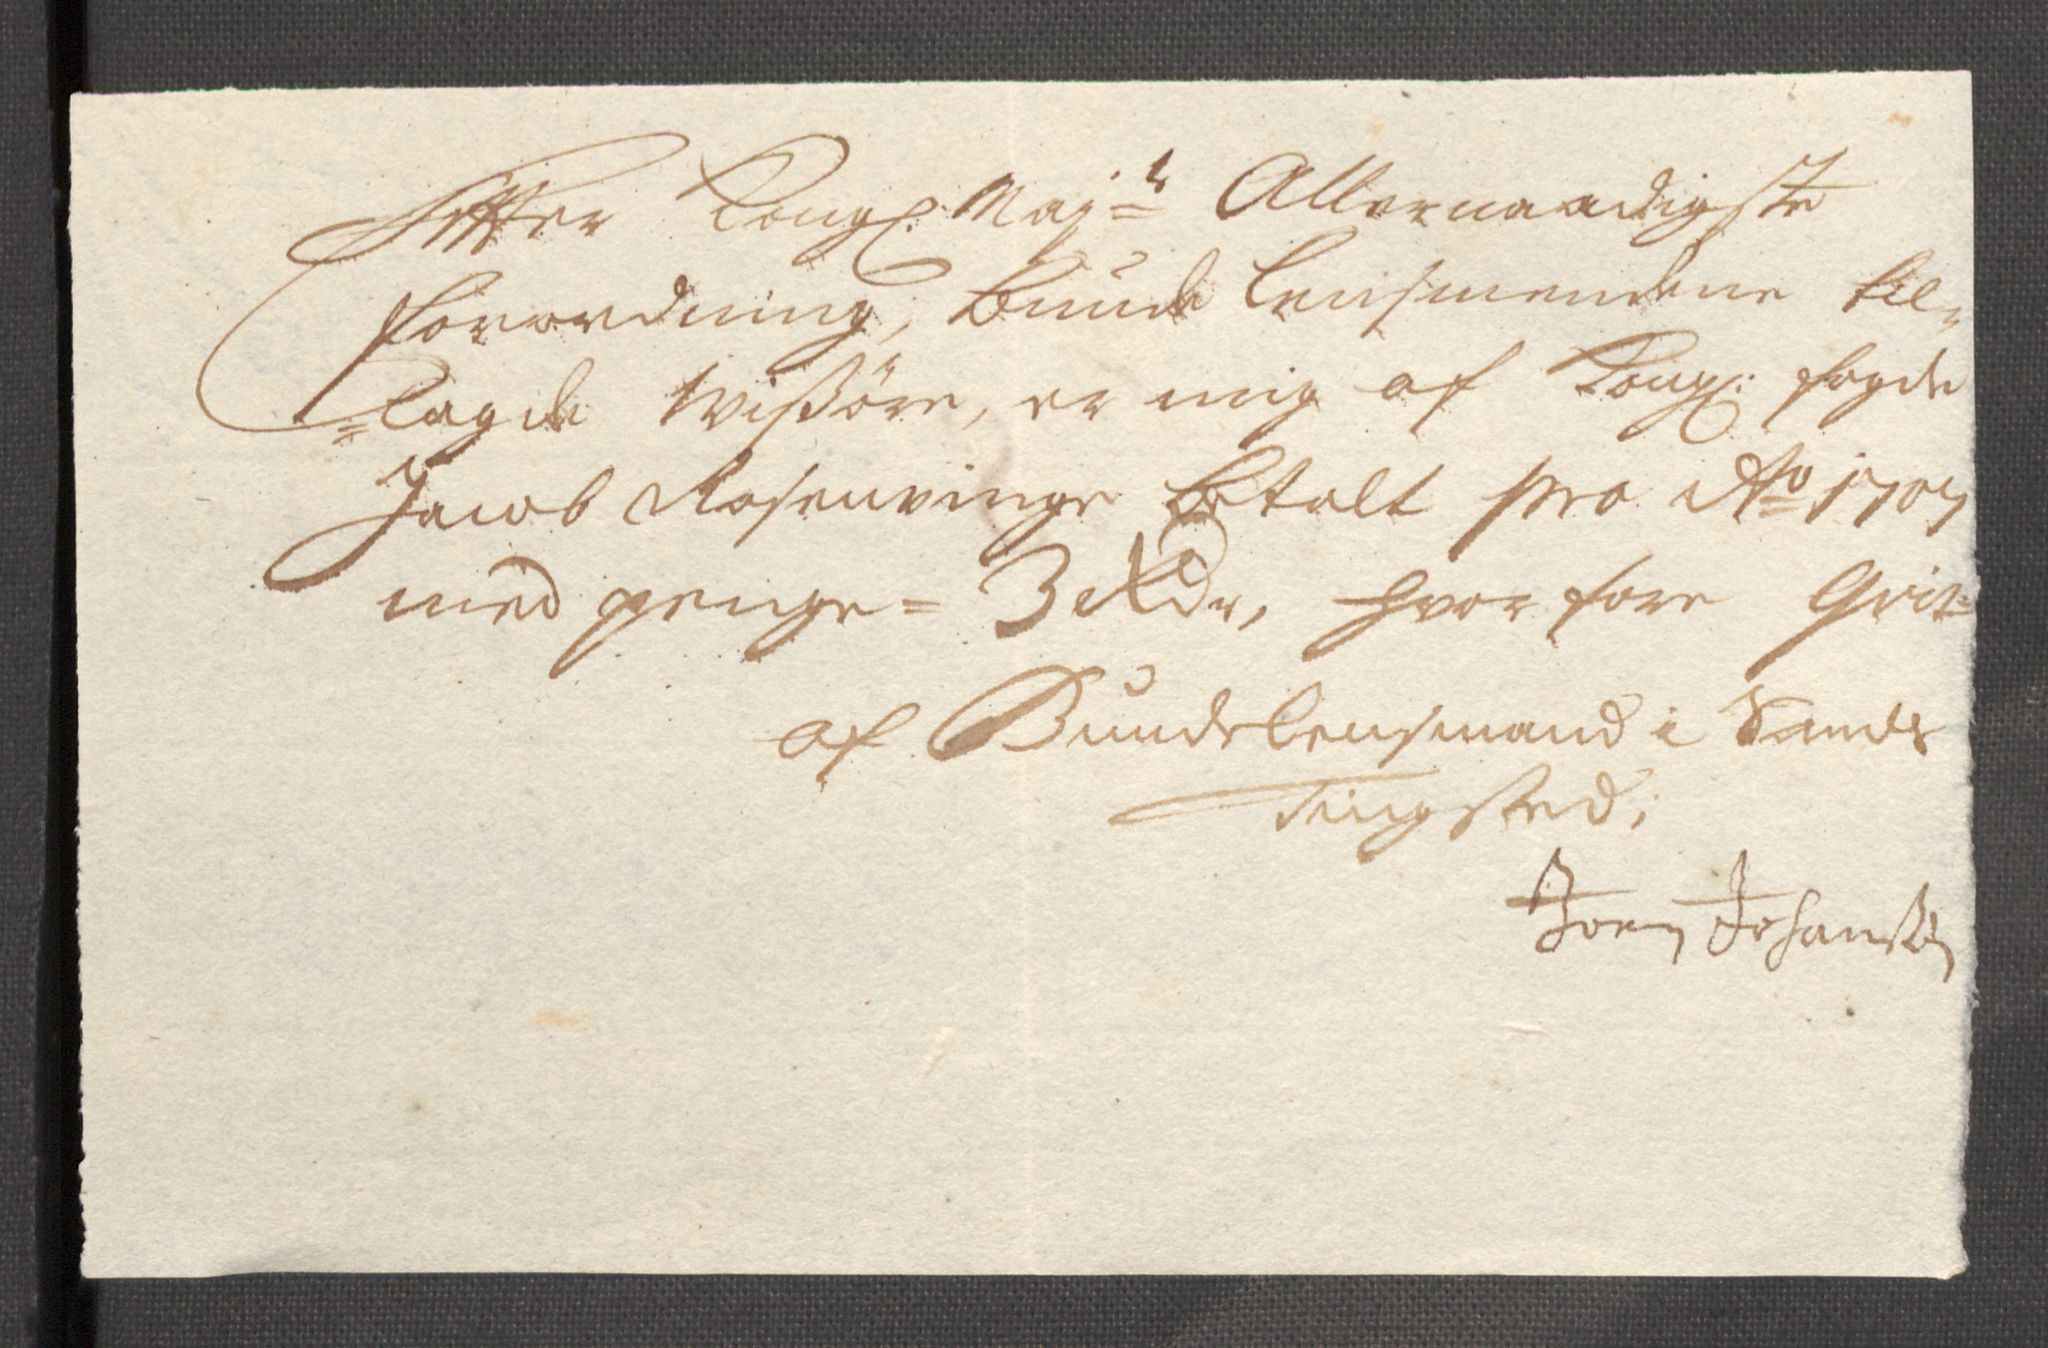 Effter Kongl. Maj:ts Allernaadigste
Forordning, Bunde Lensmendene til„
„lagde Wißöre, er mig af Kongl: fogde
Jacob Rosenvinge betalt pro Ao 1707
med penge = 3 Rdr, hvor fore Qvit:
af Bunde lensmand i
Tingsted;
Joen Johanßen